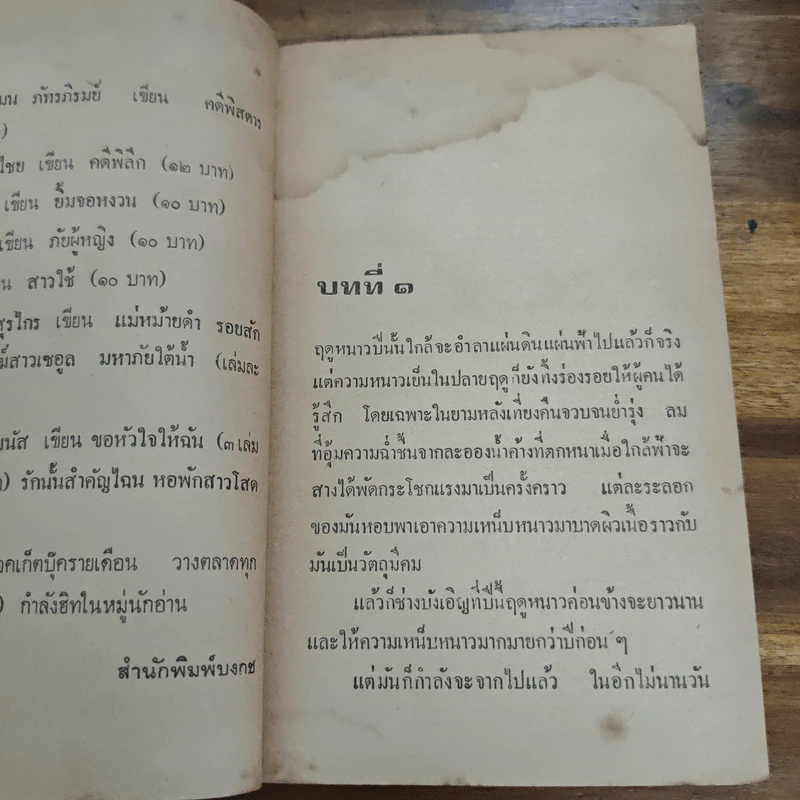 ภัทรภิรมย์ เขียน คดีพิสดาร
เขียน คดีพิลึก (๑๒ บาท)
เขียน ยิ้มจอหงวน (๑๐ บาท)
เขียน ภัยผู้หญิง (๑๐ บาท)
สาวใช้ (๑๐ บาท)
สุรไกร เขียน แม่หม้ายดำ รอยสัก
สาวเซอูล มหาภัยใต้น้ำ (เล่มละ
เขียน ขอหัวใจให้ฉัน (๓ เล่ม
รักนั้นสำคัญไฉน หอพักสาวโสด
วางตลาดทุก
กำลังฮิทในหมู่นักอ่าน
สำนักพิมพ์บงกช
บทที่ ๑
ฤดูหนาวปีนั้นใกล้จะอำลาแผ่นดินแผ่นฟ้าไปแล้วก็จริง
แต่ความหนาวเย็นในปลายฤดูก็ยังทิ้งร่องรอยให้ผู้คนได้
รู้สึก โดยเฉพาะในยามหลังเที่ยงคืนจวบจนย่ำรุ่ง ลม
ที่อุ้มความฉ่ำชื้นจากละอองน้ำค้างที่ตกหนาเมื่อใกล้ฟ้าจะ
สางได้พัดกระโชกแรงมาเป็นครั้งคราว แต่ละระลอก
ของมันหอบพาเอาความเหน็บหนาวมาบาดผิวเนื้อราวกับ
มันเป็นวัตถุมีคม
แล้วก็ช่างบังเอิญที่ปีนี้ฤดูหนาวค่อนข้างจะยาวนาน
และให้ความเหน็บหนาวมากมายกว่าปีก่อน ๆ
แต่มันก็กำลังจะจากไปแล้ว ในอีกไม่นานวัน